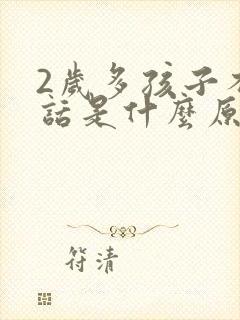 2歲多孩子
話是什麼原
符清